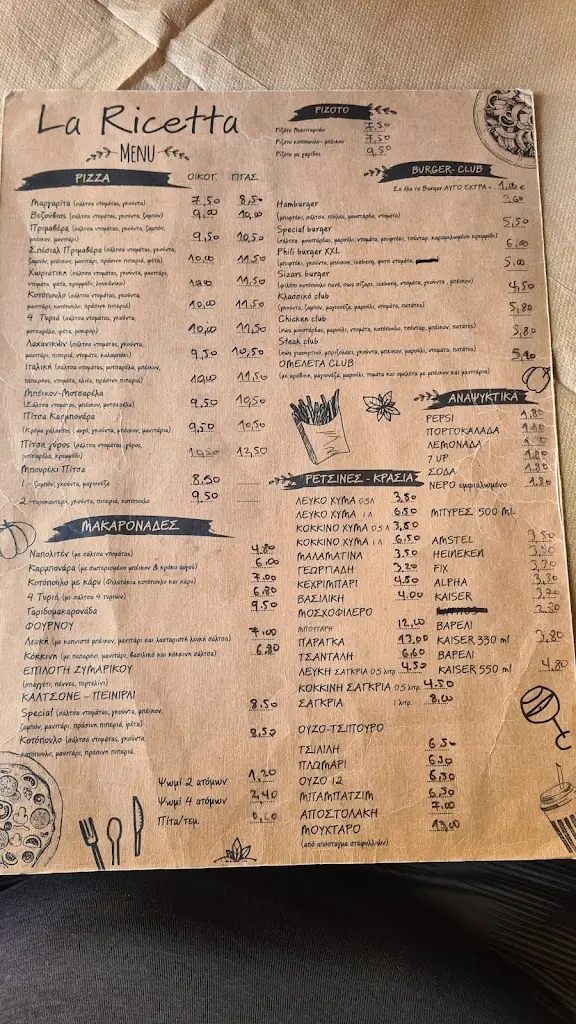 La Ricetta
MENU
PIZZA ΟΙΚΟΓ. ΠΓΑΣ
Μαργαρίτα (σάλτσα ντομάτας, γκούντα) 7,50 8,50
Βεζούβιος (σάλτσα ντομάτας, γκούντα, ζαμπόν) 9,00 10,00
Πριμαβέρα (σάλτσα ντομάτας, γκούντα, ζαμπόν,
μπέικον, μανιτάρι) 9,50 10,50
Σπέσιαλ Πριμαβέρα (σάλτσα ντομάτας, γκούντα,
ζαμπόν, μπέικον, μανιτάρι, πράσινη πιπεριά, φέτα) 10,00 11,50
Χωριάτικη (σάλτσα ντομάτας, γκούντα, μανιτάρι,
ντομάτα, φέτα, κρεμμύδι, λουκάνικο) 10,00 11,50
Κοτόπουλο (σάλτσα ντομάτας, γκούντα,
μανιτάρι, κοτόπουλο, πράσινη πιπεριά) 10,00 11,50
4 Τυριά (σάλτσα ντομάτας, γκούντα,
μοτσαρέλα, φέτα, ροκφόρ) 10,00 11,50
Λαχανικών (σάλτσα ντομάτας, γκούντα,
μανιτάρι, πιπεριά, ντομάτα, καλαμπόκι) 9,50 10,50
Ιταλική (σάλτσα ντομάτας, μοτσαρέλα, μπέικον,
πεπερόνι, ντομάτα, ελιές, πράσινη πιπεριά) 10,00 11,50
Μπέικον-Μοτσαρέλα
(Σάλτσα ντομάτας, μπέικον, μοτσαρέλα) 9,50 10,50
Πίτσα Καρμπονάρα
(Κρέμα γάλακτος, αυγό, γκούντα, μπέικον, μανιτάρια) 9,50 10,50
Πίτσα γύρος (σάλτσα ντομάτας, γύρος,
μοτσαρέλα, κρεμμύδι) 12,50
Μπουρέκι Πίτσα
1.- ζαμπόν, γκούντα, μαγιονέζα 8,50
2.-τυροκαυτερή, γκούντα, πιπεριά, κοτόπουλο 9,50
ΜΑΚΑΡΟΝΑΔΕΣ
Ναπολιτέν (με σάλτσα ντομάτας) 4,80
Καρμπονάρα (με σωταρισμένο μπέικον & κρόκο αυγού) 6,00
Κοτόπουλο με κάρυ (Φιλετάκια κοτόπουλο και κάρυ) 7,00
4 Τυριά (με σάλτσα 4 τυριών) 6,80
Γαριδομακαρονάδα 9,50
ΦΟΥΡΝΟΥ
Λευκή (με καπνιστό μπέικον, μανιτάρι και λαχταριστή λευκή σάλτσα) 7,00
Κόκκινη (με πεπερόνι, μανιτάρι, βασιλικό και κόκκινη σάλτσα) 6,80
ΕΠΙΛΟΓΗ ΖΥΜΑΡΙΚΟΥ
(σπαγγέτι, πέννες, τορτελίνι)
ΚΑΛΤΣΟΝΕ - ΠΕΪΝΙΡΛΙ
Special (σάλτσα ντομάτας, γκούντα, μπέικον,
ζαμπόν, μανιτάρι, πράσινη πιπεριά, φέτα) 8,50
Κοτόπουλο (σάλτσα ντομάτας, γκούντα,
κοτόπουλο, μανιτάρι, πράσινη πιπεριά 8,50
Ψωμί 2 ατόμων 1,20
Ψωμί 4 ατόμων 2,40
Πίτα/τεμ. 0,60
ΡΙΖΟΤΟ
Ριζότο Μανιταριών 7,50
Ριζότο κοτόπουλο- μπέικον 7,50
Ριζότο με γαρίδες 9,50
BURGER- CLUB
Σε όλα τα Burger ΑΥΓΟ ΕΧΤΡΑ + 1,00 €
Hamburger
(μπιφτέκι, σάλτσα, πίκλες, μουστάρδα, ντομάτα) 5,50
Special burger
(σάλτσα μουστάρδας, μαρούλι, ντομάτα, μπιφτέκι, τσένταρ, καραμελωμένο κρεμμύδι) 6,00
Phili burger XXL
(μπιφτέκι, γκούντα, μπέικον, iceberg, φέτα ντομάτας, 5,00
Sizars burger
(φιλέτο κοτόπουλο πανέ, σως σίζαρς, iceberg, ντομάτα, γκούντα, μπέικον) 4,50
Κλασσικό club
(γκούντα, ζαμπόν, μαγιονέζα, μαρούλι, ντομάτα, πατάτες) 5,80
Chicken club
(σως μουστάρδας, μαρούλι, ντομάτα, κοτόπουλο, τσένταρ, μπέικον, πατάτες) 5,80
Steak club
(σως γιαουρτιού, μπριζολάκι, γκούντα, μπέικον, μαρούλι, ντομάτα, πατάτες)
ΟΜΕΛΕΤΑ CLUB
(με αραβική, μαγιονέζα, μαρούλι, τομάτα και ομελέτα με μπέικον και μανιτάρια)
ΑΝΑΨΥΚΤΙΚΑ
PEPSI 1,80
ΠΟΡΤΟΚΑΛΑΔΑ 1,80
ΛΕΜΟΝΑΔΑ
7 UP 1,80
ΣΟΔΑ 1,80
ΝΕΡΟ εμφιαλωμένο 1,80
ΡΕΤΣΙΝΕΣ - ΚΡΑΣΙΑ
ΛΕΥΚΟ ΧΥΜΑ 0.5Λ 3,50
ΛΕΥΚΟ ΧΥΜΑ 1 Λ 6,50
ΚΟΚΚΙΝΟ ΧΥΜΑ 0.5 Λ 3,80
ΚΟΚΚΙΝΟ ΧΥΜΑ 1 Λ 6,50
ΜΑΛΑΜΑΤΙΝΑ 3,50
ΓΕΩΡΓΙΑΔΗ 3,20
ΚΕΧΡΙΜΠΑΡΙ 4,50
ΒΑΣΙΛΙΚΗ 4,00
ΜΟΣΧΟΦΙΛΕΡΟ
ΜΠΟΥΤΑΡΗ 12,00
ΠΑΡΑΓΚΑ 13,00
ΤΣΑΝΤΑΛΗ 6,60
ΛΕΥΚΗ ΣΑΓΚΡΙΑ 0,5 λιτρ. 4,50
ΚΟΚΚΙΝΗ ΣΑΓΚΡΙΑ 0,5 λιτρ. 4.50
ΣΑΓΚΡΙΑ 1 λιτρ. 8,00
ΜΠΥΡΕΣ 500 ML
AMSTEL 3,50
HEINEKEN
FIX
ALPHA
KAISER
2,80
ΒΑΡΕΛΙ
KAISER 330 ml 3,80
ΒΑΡΕΛΙ
KAISER 550 ml 4,80
ΟΥΖΟ-ΤΣΙΠΟΥΡΟ
ΤΣΙΛΙΛΗ 6,50
ΠΛΩΜΑΡΙ 6,50
ΟΥΖΟ 12 6,50
ΜΠΑΜΠΑΤΖΙΜ 6,50
ΑΠΟΣΤΟΛΑΚΗ 7,00
ΜΟΥΧΤΑΡΟ 13,00
(από απόσταγμα σταφυλιών)